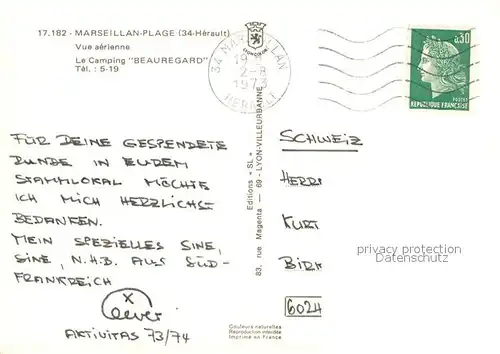 17.182 - MARSEILLAN-PLAGE (34-Hérault)
Vue aérienne
Le Camping "BEAUREGARD"
Tél. : 5-19
34 MARSEILLAN
2-8
1973
HERAULT
0,30
POSTES
REPUBLIQUE FRANÇAISE
FÜR DEINE GESPENDETE
RUNDE IN EUREM
STAMMLOKAL MÖCHTE
ICH MICH HERZLICHST
BEDANKEN.
MEIN SPEZIELLES SINE,
SINE, N.H.B. AUS SÜD-
FRANKREICH
X
AKTIVITAS 73/74
Editions "SL"
83, rue Magenta — 69 - LYON-VILLEURBANNE
SCHWEIZ
HERR
KURT
6024
privacy protection
Datenschutz
Couleurs naturelles
Reproduction interdite
Imprimé en France